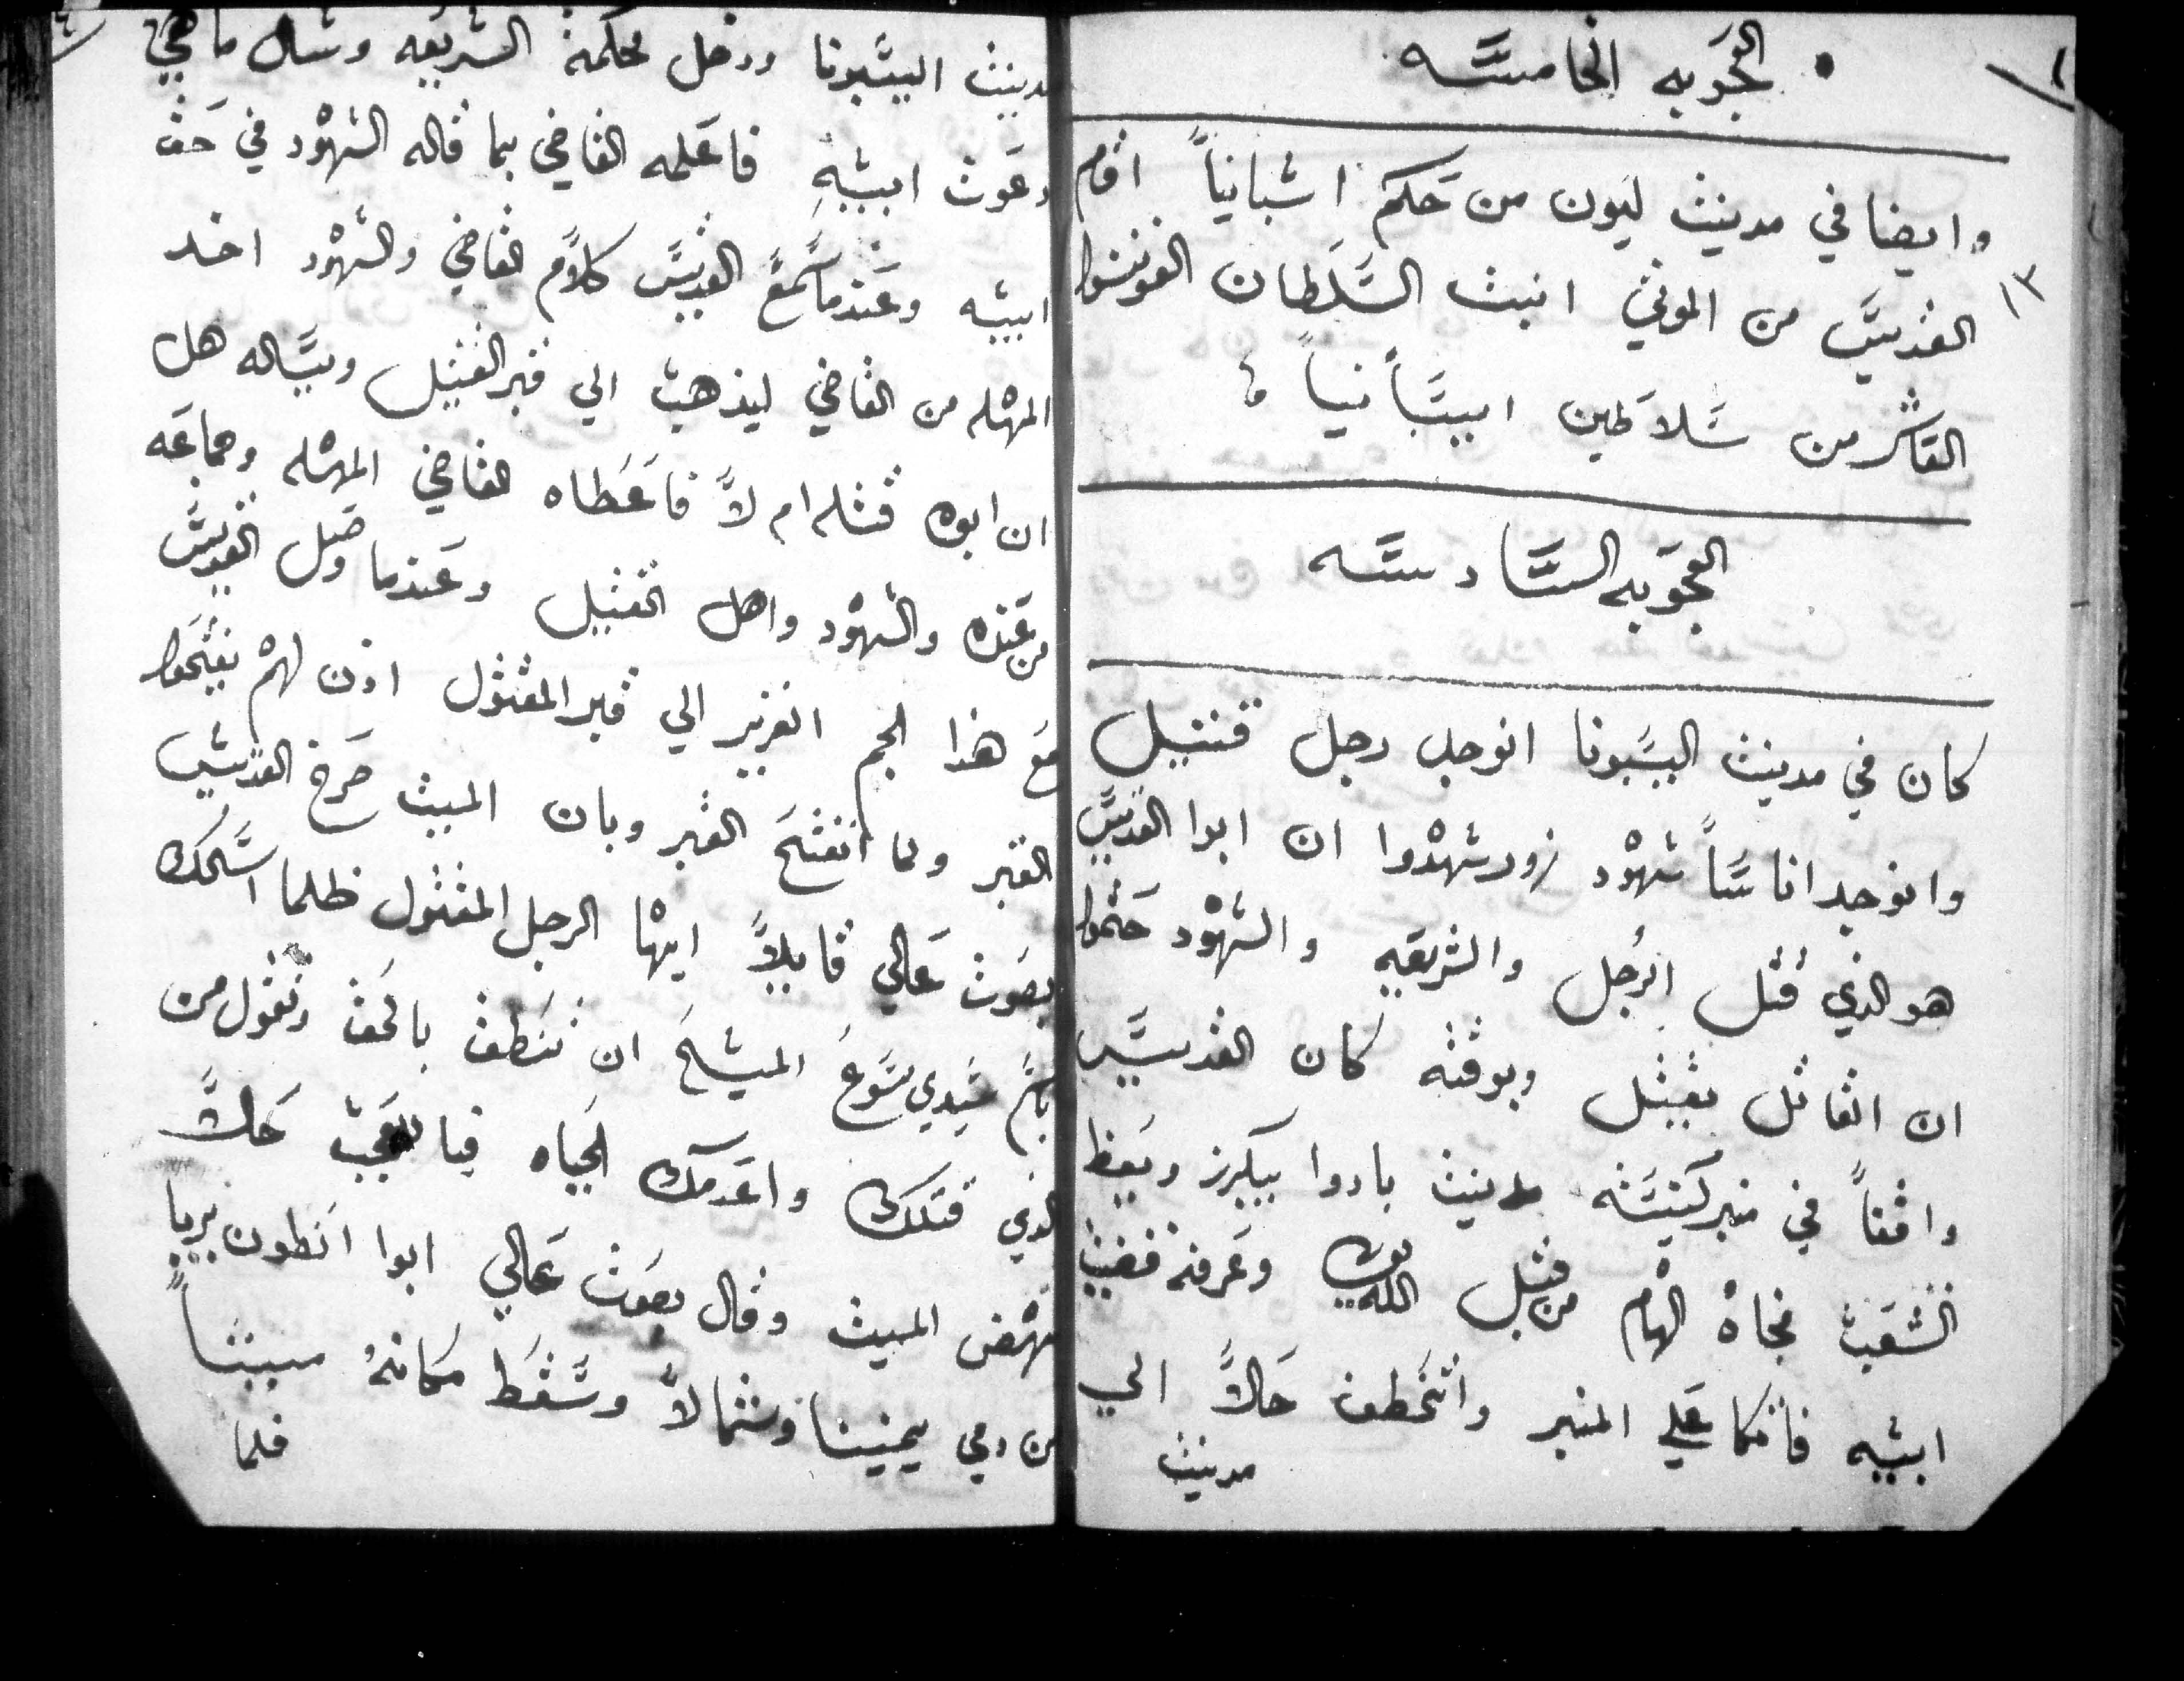 العجوبه الخامسه
وايضا في مدينث ليون من حكم اشبانياً اقام
١٣
القديس من الموثي ابنث السلطان الفونسوا
العاشر من سلاطين اسبانياً
العجوبه السادسه
كان في مدينث اليسبونا انوجل رجل قثيل
وانوجد اناساً شهود زور شهدوا ان ابوا القديس
هو الذي قثل الرجل والشريعه والشهود حثموا
ان القاثل يقثل وبوقثه كان القديس
واقفاً في منبر كنيسثه بمدينث بادوا بيكرز ويعظ
الشعب فجاه الهام من قبل الله وعرفه قضيث
ابيه فاثكا علي المنبر وانخطف حالاً الي
مدينث
مدينث اليسبونا ودخل محكمة الشريعه وسال ما هي
دعوث ابيه فاعلمه القاضي بما قاله الشهود في حق
ابيه وعندما سمع القديس كلام القاضي والشهود اخد
المهله من القاضي ليذهب الي قبر القثيل ويساله هل
ان ابوه قثله ام لا فاعطاه القاضي المهله وجماعه
من عنده والشهود واهل القثيل وعندما وصل القديس
مع هذا الجم الغزير الي قبر المقثول اذن لهم يفثحوا
القبر ولما انفثح القبر وبان الميث صرخ القديس
بصوث عالي قايلاً ايها الرجل المقثول ظلما اسثحلفك
باسم سيدي يسوع المسيح ان ثنطق بالحق وثقول من
الذي قثلك واعدمك الحياه فيا للعجب حالاً
نهض الميث وقال بصوث عالي ابوا انطون بريا
من دمي يمينا وشمالا وسقط مكانه ميثاً
فلما